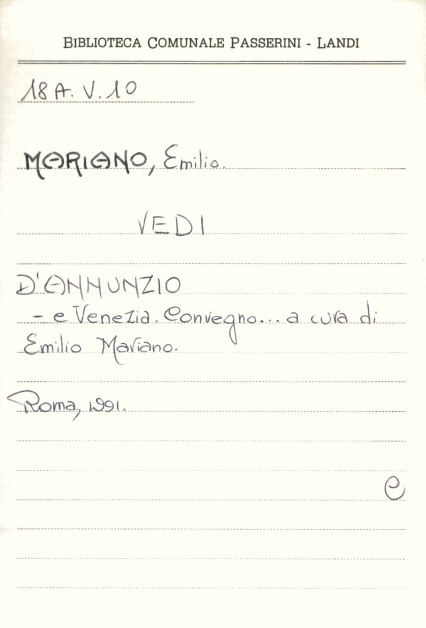 BIBLIOTECA COMUNALE PASSERINI - LANDI
18 A. V. 10
MARIANO, Emilio.
VEDI
D'ANNUNZIO
- e Venezia. Convegno... a cura di
Emilio Mariano.
Roma, 1991.
C